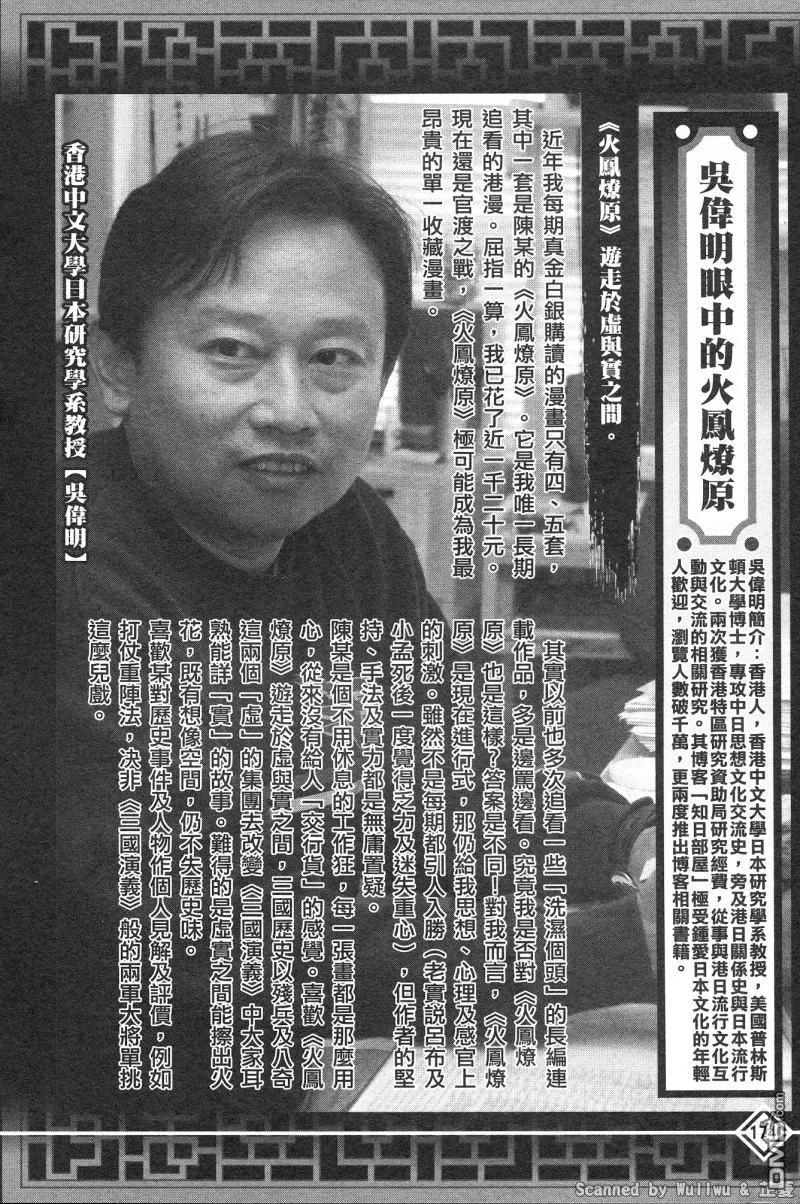 吳偉明眼中的火鳳燎原
吳偉明簡介：香港人，香港中文大學日本研究學系教授，美國普林斯
頓大學博士，專攻中日思想文化交流史，旁及港日關係史與日本流行
文化。兩次獲香港特區研究資助局研究經費，從事與港日流行文化互
動與交流的相關研究。其博客「知日部屋」極受鍾愛日本文化的年輕
人歡迎，瀏覽人數破千萬，更兩度推出博客相關書籍。
《火鳳燎原》遊走於虛與實之間。
近年我每期真金白銀購讀的漫畫只有四、五套，
其中一套是陳某的《火鳳燎原》。它是我唯一長期
追看的港漫。屈指一算，我已花了近一千二十元。
現在還是官渡之戰，《火鳳燎原》極可能成為我最
昂貴的單一收藏漫畫。
其實以前也多次追看一些「洗濕個頭」的長編連
載作品，多是邊罵邊看。究竟我是否對《火鳳燎
原》也是這樣？答案是不同！對我而言，《火鳳燎
原》是現在進行式，那仍給我思想、心理及感官上
的刺激。雖然不是每期都引人入勝（老實說呂布及
小孟死後一度覺得乏力及迷失重心），但作者的堅
持、手法及實力都是無庸置疑。
陳某是個不用休息的工作狂，每一張畫都是那麼用
心，從來沒有給人「交行貨」的感覺。喜歡《火鳳
燎原》遊走於虛與實之間，三國歷史以殘兵及八奇
這兩個「虛」的集團去改變《三國演義》中大家耳
熟能詳「實」的故事。難得的是虛實之間能擦出火
花，既有想像空間，仍不失歷史味。
喜歡某對歷史事件及人物作個人見解及評價，例如
打仗重陣法，決非《三國演義》般的兩軍大將單挑
這麼兒戲。
香港中文大學日本研究學系教授【吳偉明】
Scanned by Wuliwu & 芷雯